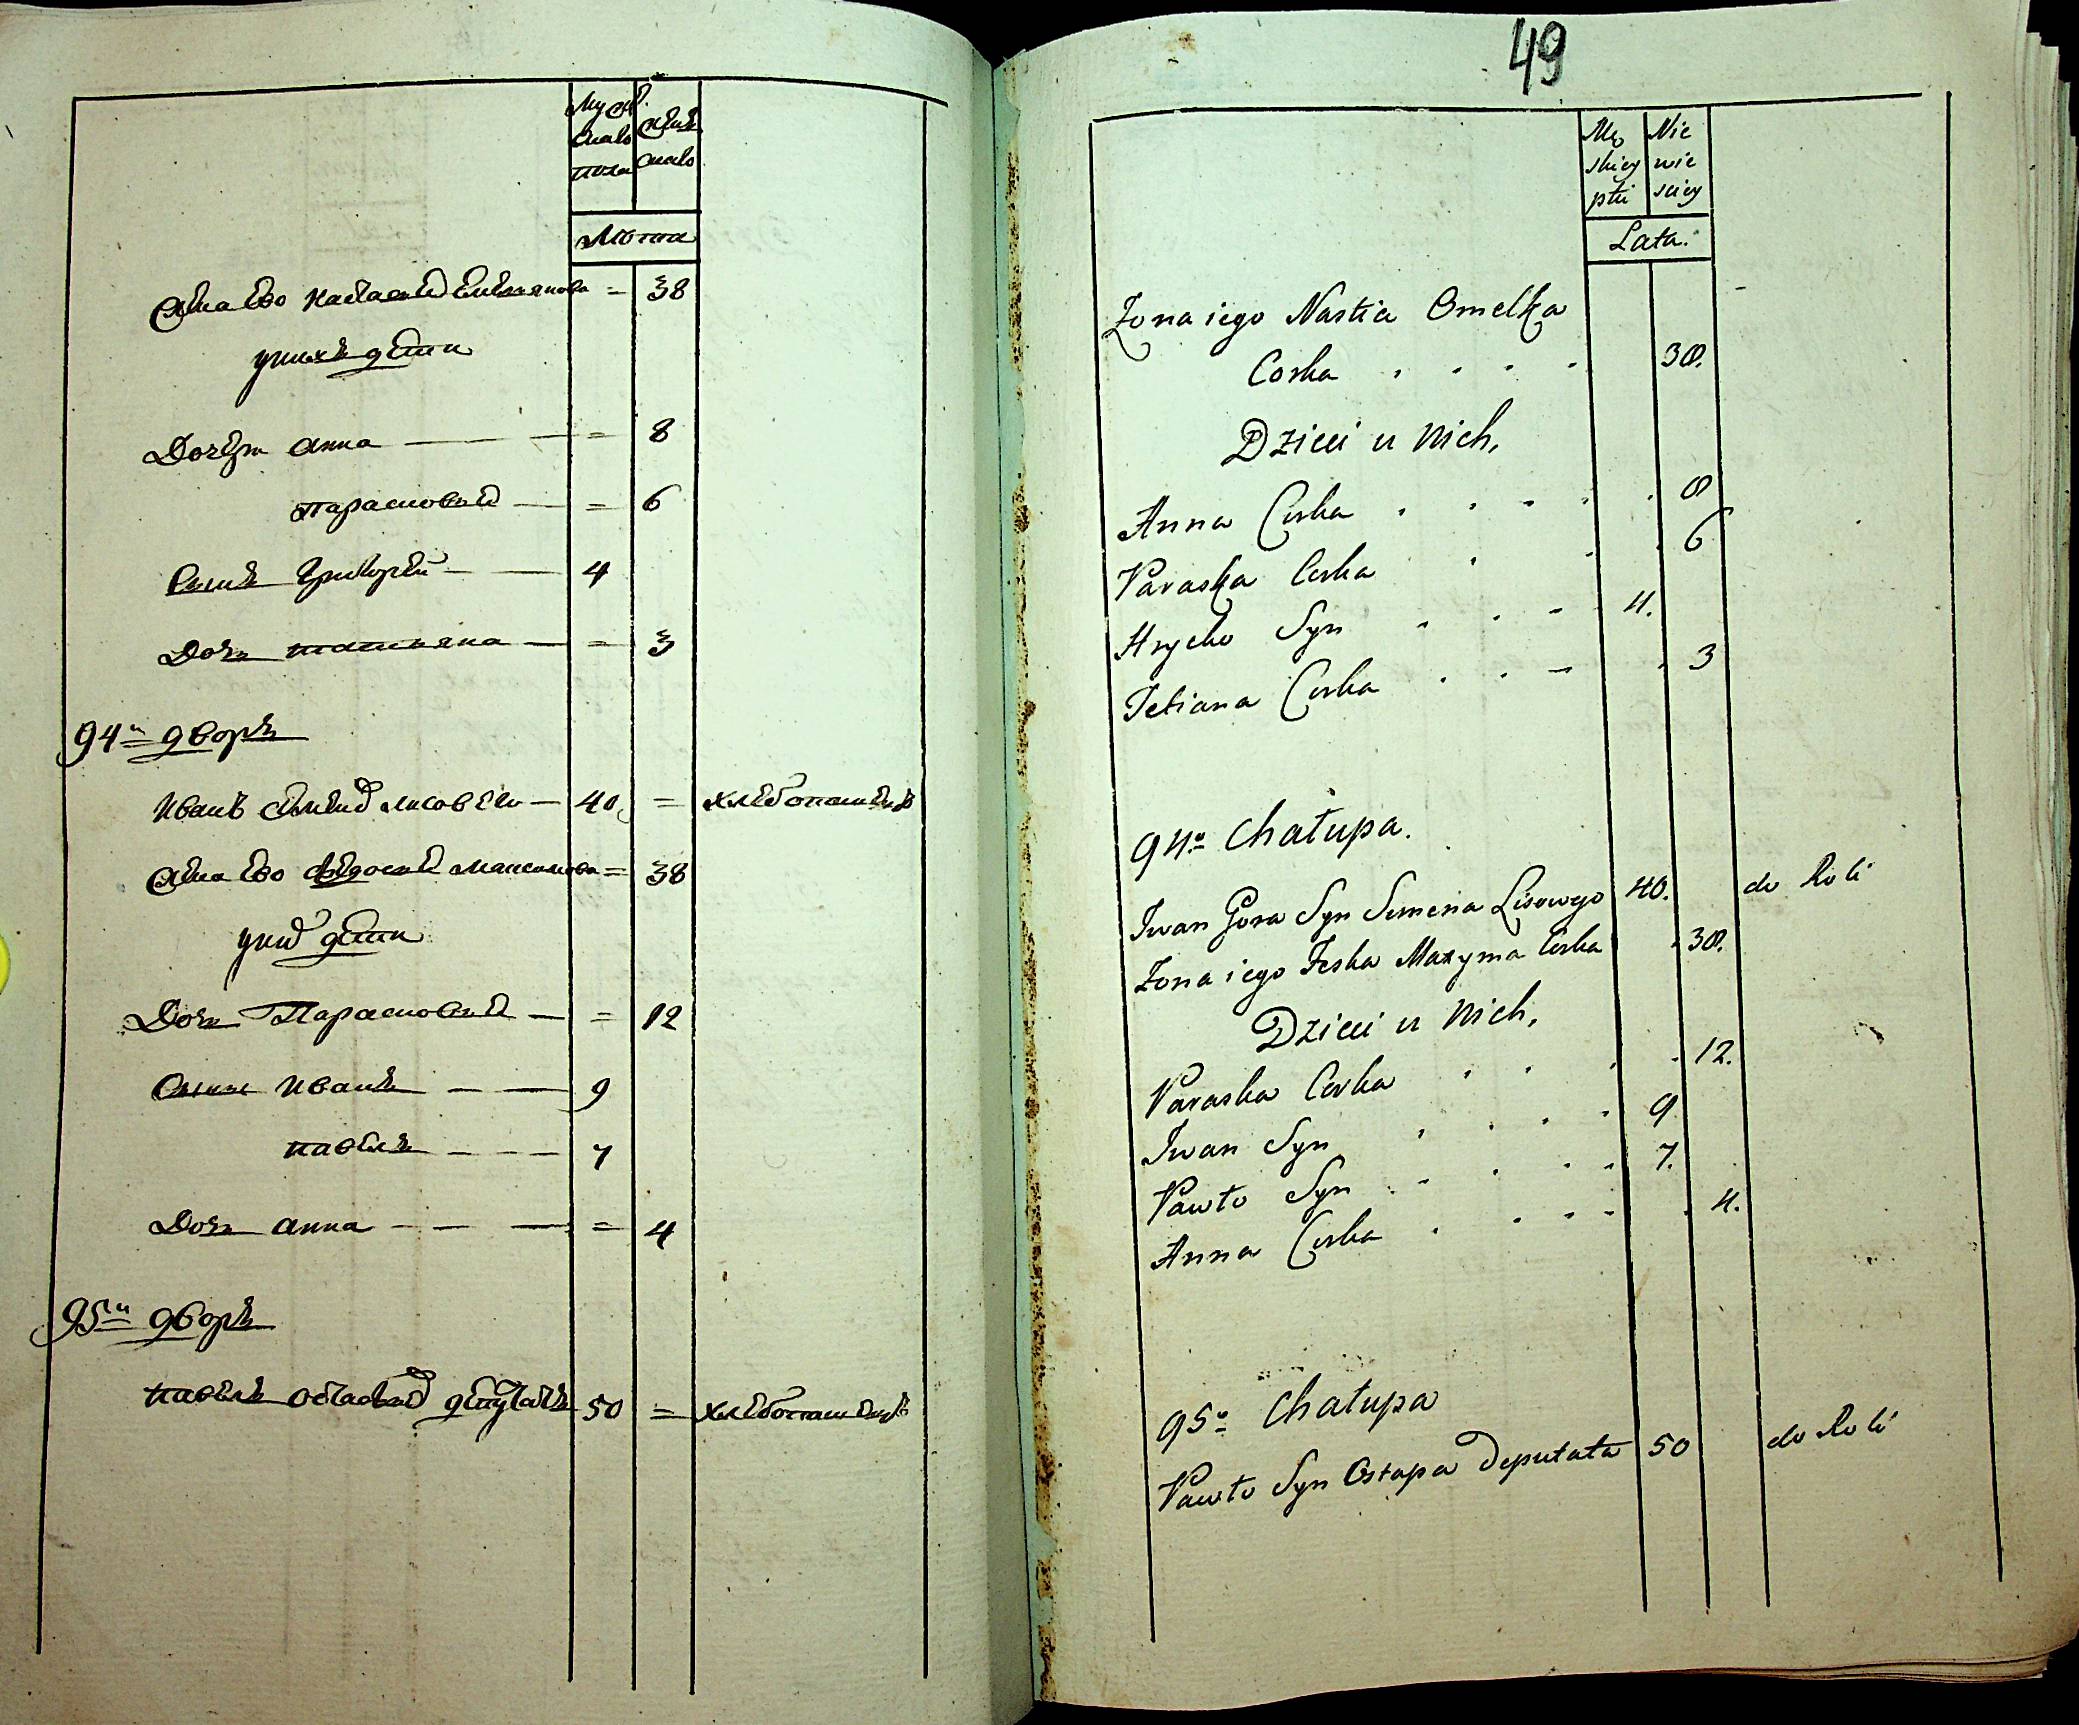 Муж.
скаго
пола
Жен.
скаго
Лѣта
Жена Ево настасия Емельянова = 38
у нихъ дѣти
Дочери анна = 8
парасковия = 6
Сынъ Григорей 4
Дочь татьяна = 3
94й дворъ
Иванъ Лисовски 40 = хлѣбопашецъ
Жена Ево Федосия Максимова = 38
у них дѣти
Дочь Парасковия = 12
Сыны Иванъ 9
павелъ 7
Дочь анна = 4
95й дворъ
павелъ остапов депутатъ 50 = хлѣбопашецъ
49
Mę
skiey
płci
Nie
wie
sciey
Lata.
Żona iego Nastia Omelka
Corka 38.
Dzieci u Nich,
Anna Corka 8
Paraska Corka 6
Hryćko Syn 4.
Tetiana Corka 3
94a Chałupa.
Iwan Gora Syn Semena Lisowego 40. do Roli
Żona iego Feska Maxyma Corka 38.
Dzieci u Nich,
Paraska Corka 12.
Iwan Syn 9
Pawło Syn 7.
Anna Corka 4.
95a Chałupa
Pawło Syn Ostapa Deputata 50 do Roli